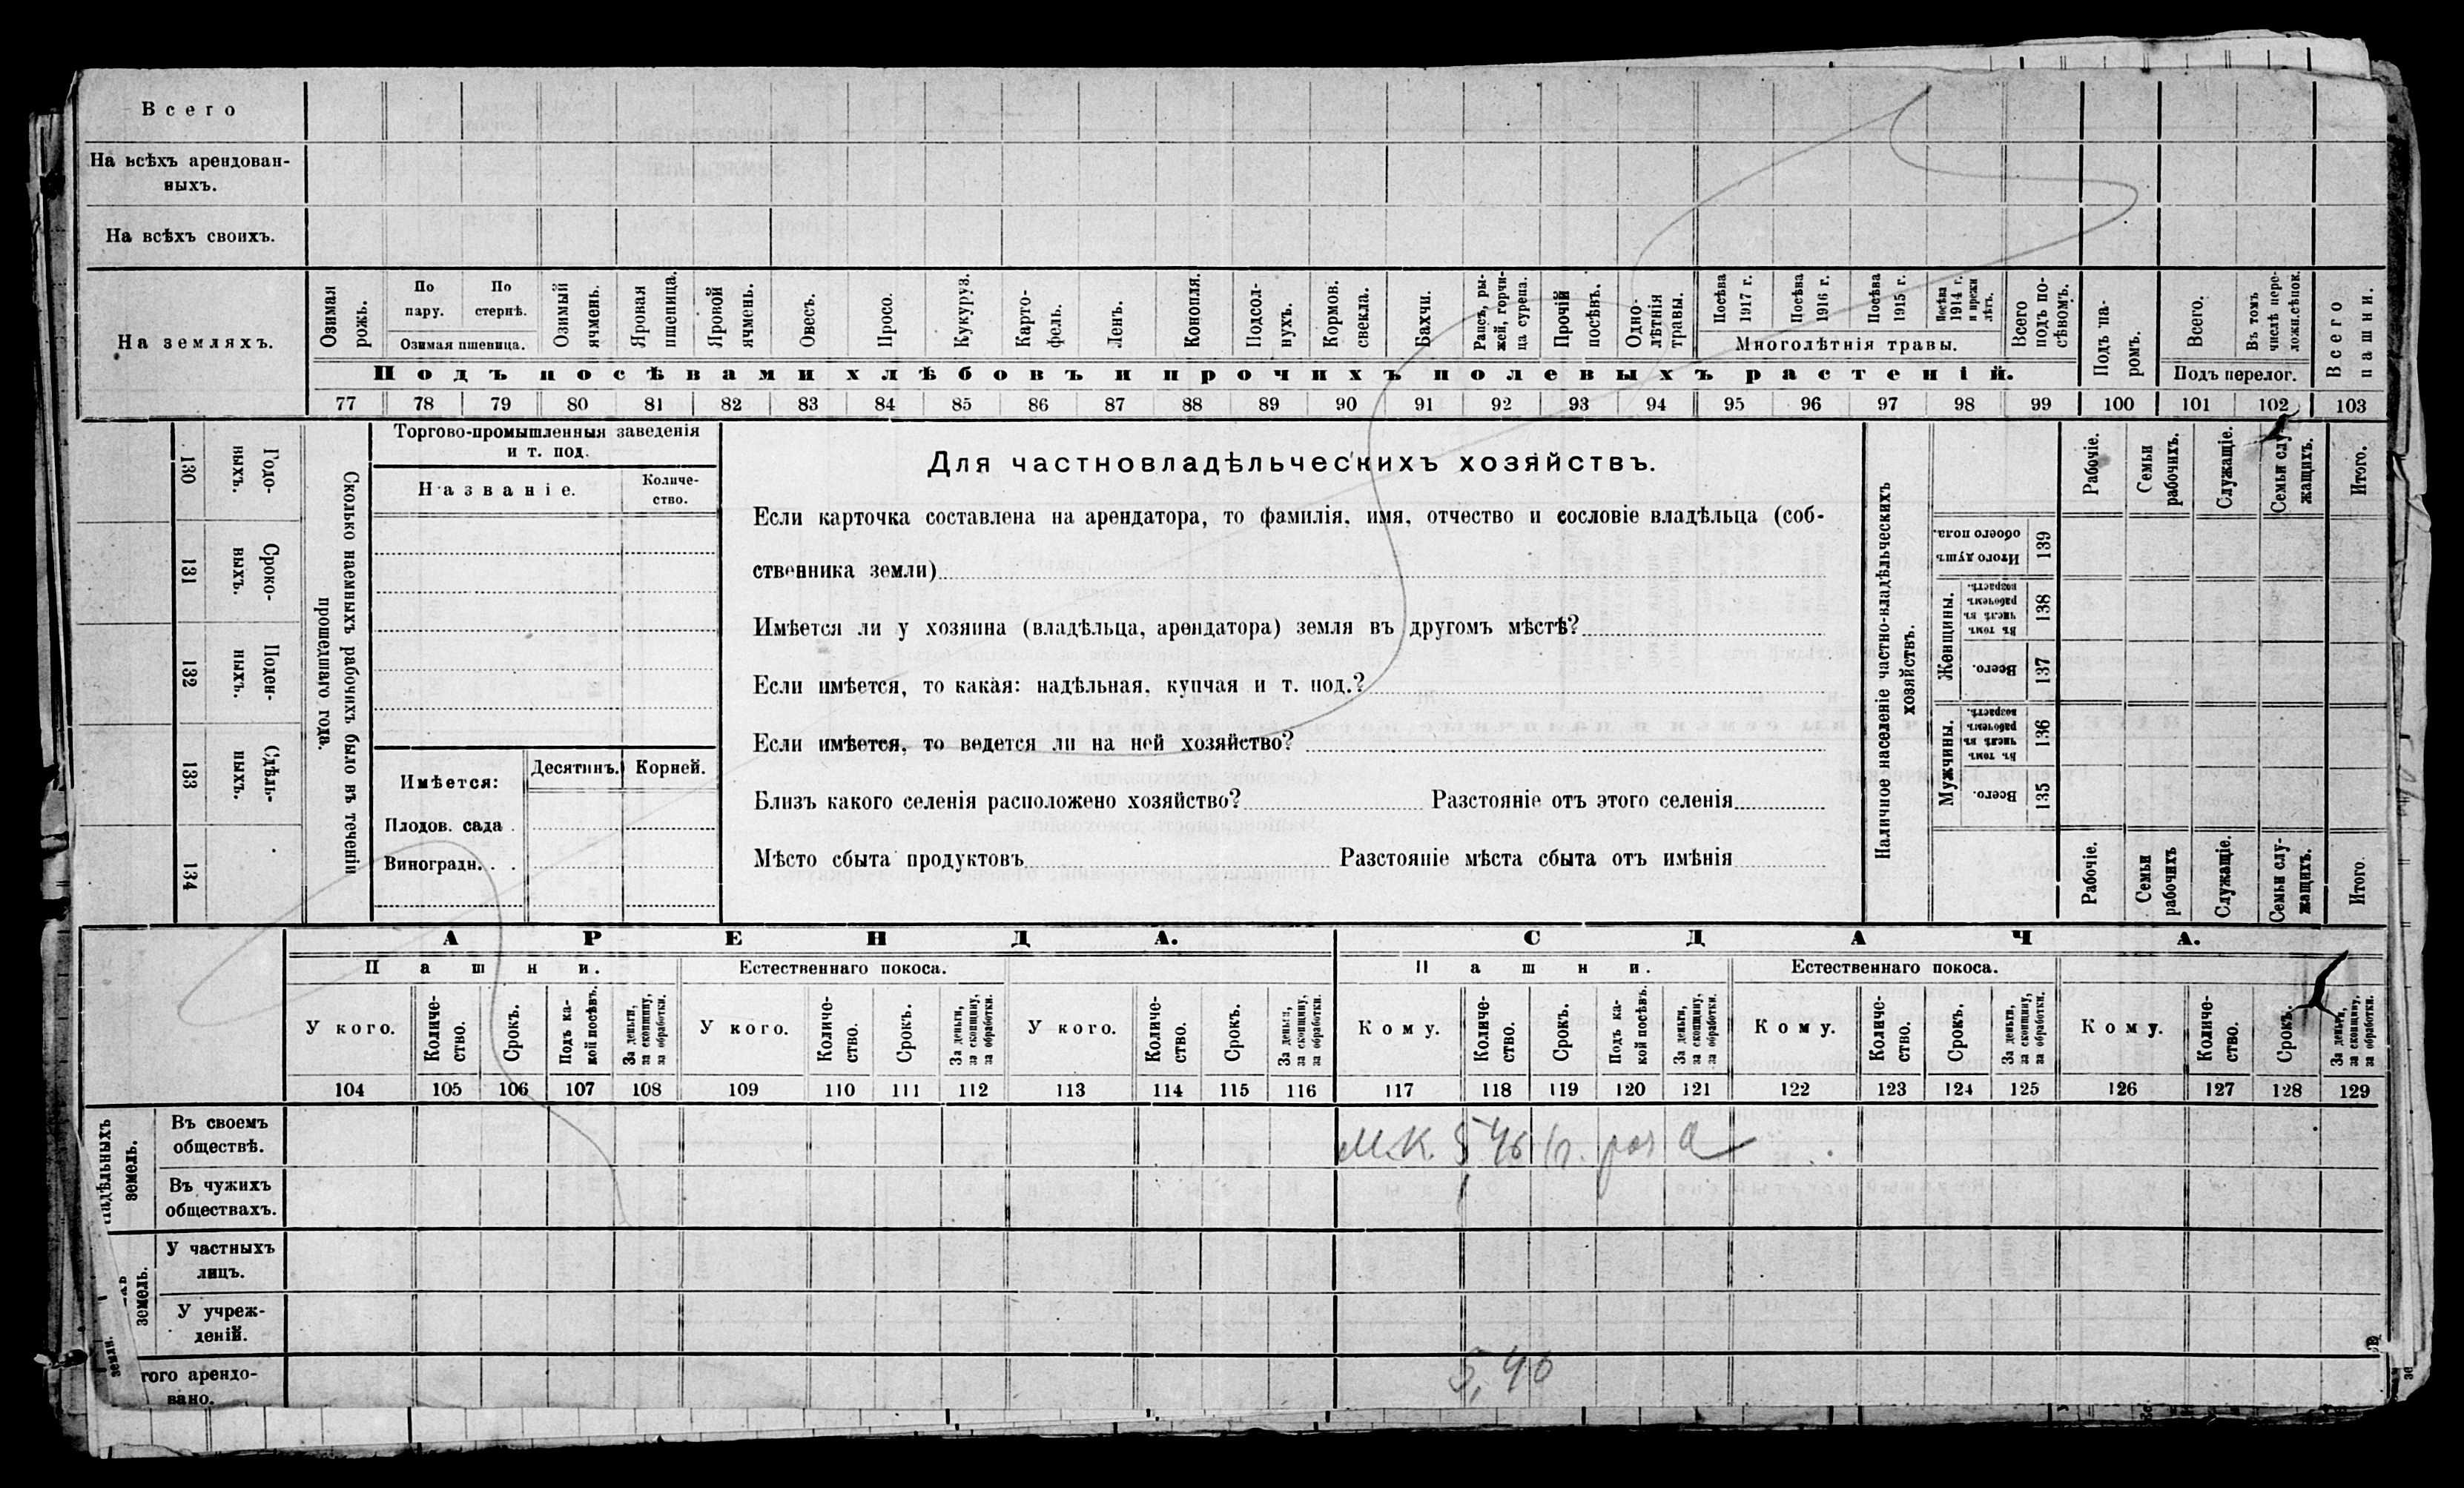 Всего
На всѣхъ арендован-
ныхъ.
На всѣхъ своихъ.
На земляхъ.
Озимая рожь.
По пару.
По стернѣ.
Озимая пшеница.
Озимый ячмень.
Яровая пшеница.
Яровой ячмень.
Овесъ.
Просо.
Кукуруз.
Карто-
фель.
Ленъ.
Конопля.
Подсол-
нухъ.
Кормов.
свекла.
Бахчи.
Рапсъ, ры-
жей, горчи-
ца сурепа.
Прочій
посѣвъ.
Одно-
лѣтнія
травы.
Посѣва
1917 г.
Посѣва
1916 г.
Посѣва
1915 г.
Посѣва
1914 г.
и прежн
лѣтъ.
Многолѣтнія травы.
Всего
подъ по-
сѣвомъ.
Подъ па-
ромъ.
Всего.
Въ томъ
числѣ пере-
ложн.сѣнок.
Подъ перелог.
Всего
пашни.
Подъ посѣвами хлѣбовъ и прочихъ полевыхъ растеній.
77 78 79 80 81 82 83 84 85 86 87 88 89 90 91 92 93 94 95 96 97 98 99 100 101 102 103
130 Годо-
ныхъ.
131 Сроко-
выхъ.
132 Поден-
ныхъ.
133 Сдѣль-
ныхъ.
134
Сколько наемныхъ рабочихъ было въ теченіи
прошедшаго года.
Торгово-промышленныя заведенія
и т. под.
Названіе.
Количе-
ство.
Имѣется:
Десятинъ.
Корней.
Плодов. сада .
Виноградн. . .
Для частновладѣльческихъ хозяйствъ.
Если карточка составлена на арендатора, то фамилія, имя, отчество и сословіе владѣльца (соб-
ственника земли)
Имѣется ли у хозяина (владѣльца, арендатора) земля въ другомъ мѣстѣ?
Если имѣется, то какая: надѣльная, купчая и т. под.?
Если имѣется, то ведется ли на ней хозяйство?
Близъ какого селенія расположено хозяйство? Разстояніе отъ этого селенія
Мѣсто сбыта продуктовъ Разстояніе мѣста сбыта отъ имѣнія
Наличное населеніе частно-владѣльческихъ
хозяйствъ.
Рабочіе.
Семьи
рабочихъ.
Служащіе.
Семьи слу-
жащихъ.
Итого.
Итого душъ
обоего пола.
139
Женщины.
Въ томъ
числѣ въ
рабочемъ
возрастѣ.
138
Всего.
137
Мужчины.
Въ томъ
числѣ въ
рабочемъ
возрастѣ.
136
Всего.
135
Рабочіе.
Семьи
рабочих
Служащіе.
Семьи слу-
жащихъ.
Итого.
АРЕНДА.
СДАЧА.
Пашни.
Естественнаго покоса.
Пашни.
Естественнаго покоса.
У кого.
Количе-
ство.
Срокъ.
Подъ ка-
кой посѣвъ.
За деньги,
за скопщину,
за обработки.
У кого.
Количе-
ство.
Срокъ.
За деньги,
за скопщину,
за обработки.
У кого.
Количе-
ство.
Срокъ.
За деньги,
за скопщину,
за обработки.
Кому.
Количе-
ство.
Срокъ.
Подъ ка-
кой посѣвъ.
За деньги,
за скопщину,
за обработки.
Кому.
Количе-
ство.
Срокъ.
За деньги,
за скопщину,
за обработки.
Кому.
Количе-
ство.
Срокъ.
За деньги,
за скопщину,
за обработки.
104 105 106 107 108 109 110 111 112 113 114 115 116 117 118 119 120 121 122 123 124 125 126 127 128 129
надѣльныхъ
земель.
Въ своемъ
обществѣ.
М.К. 5 46
Въ чужихъ
обществахъ.
земель.
У частныхъ
лицъ.
У учреж-
деній.
земли.
того арендо-
вано.
5,46